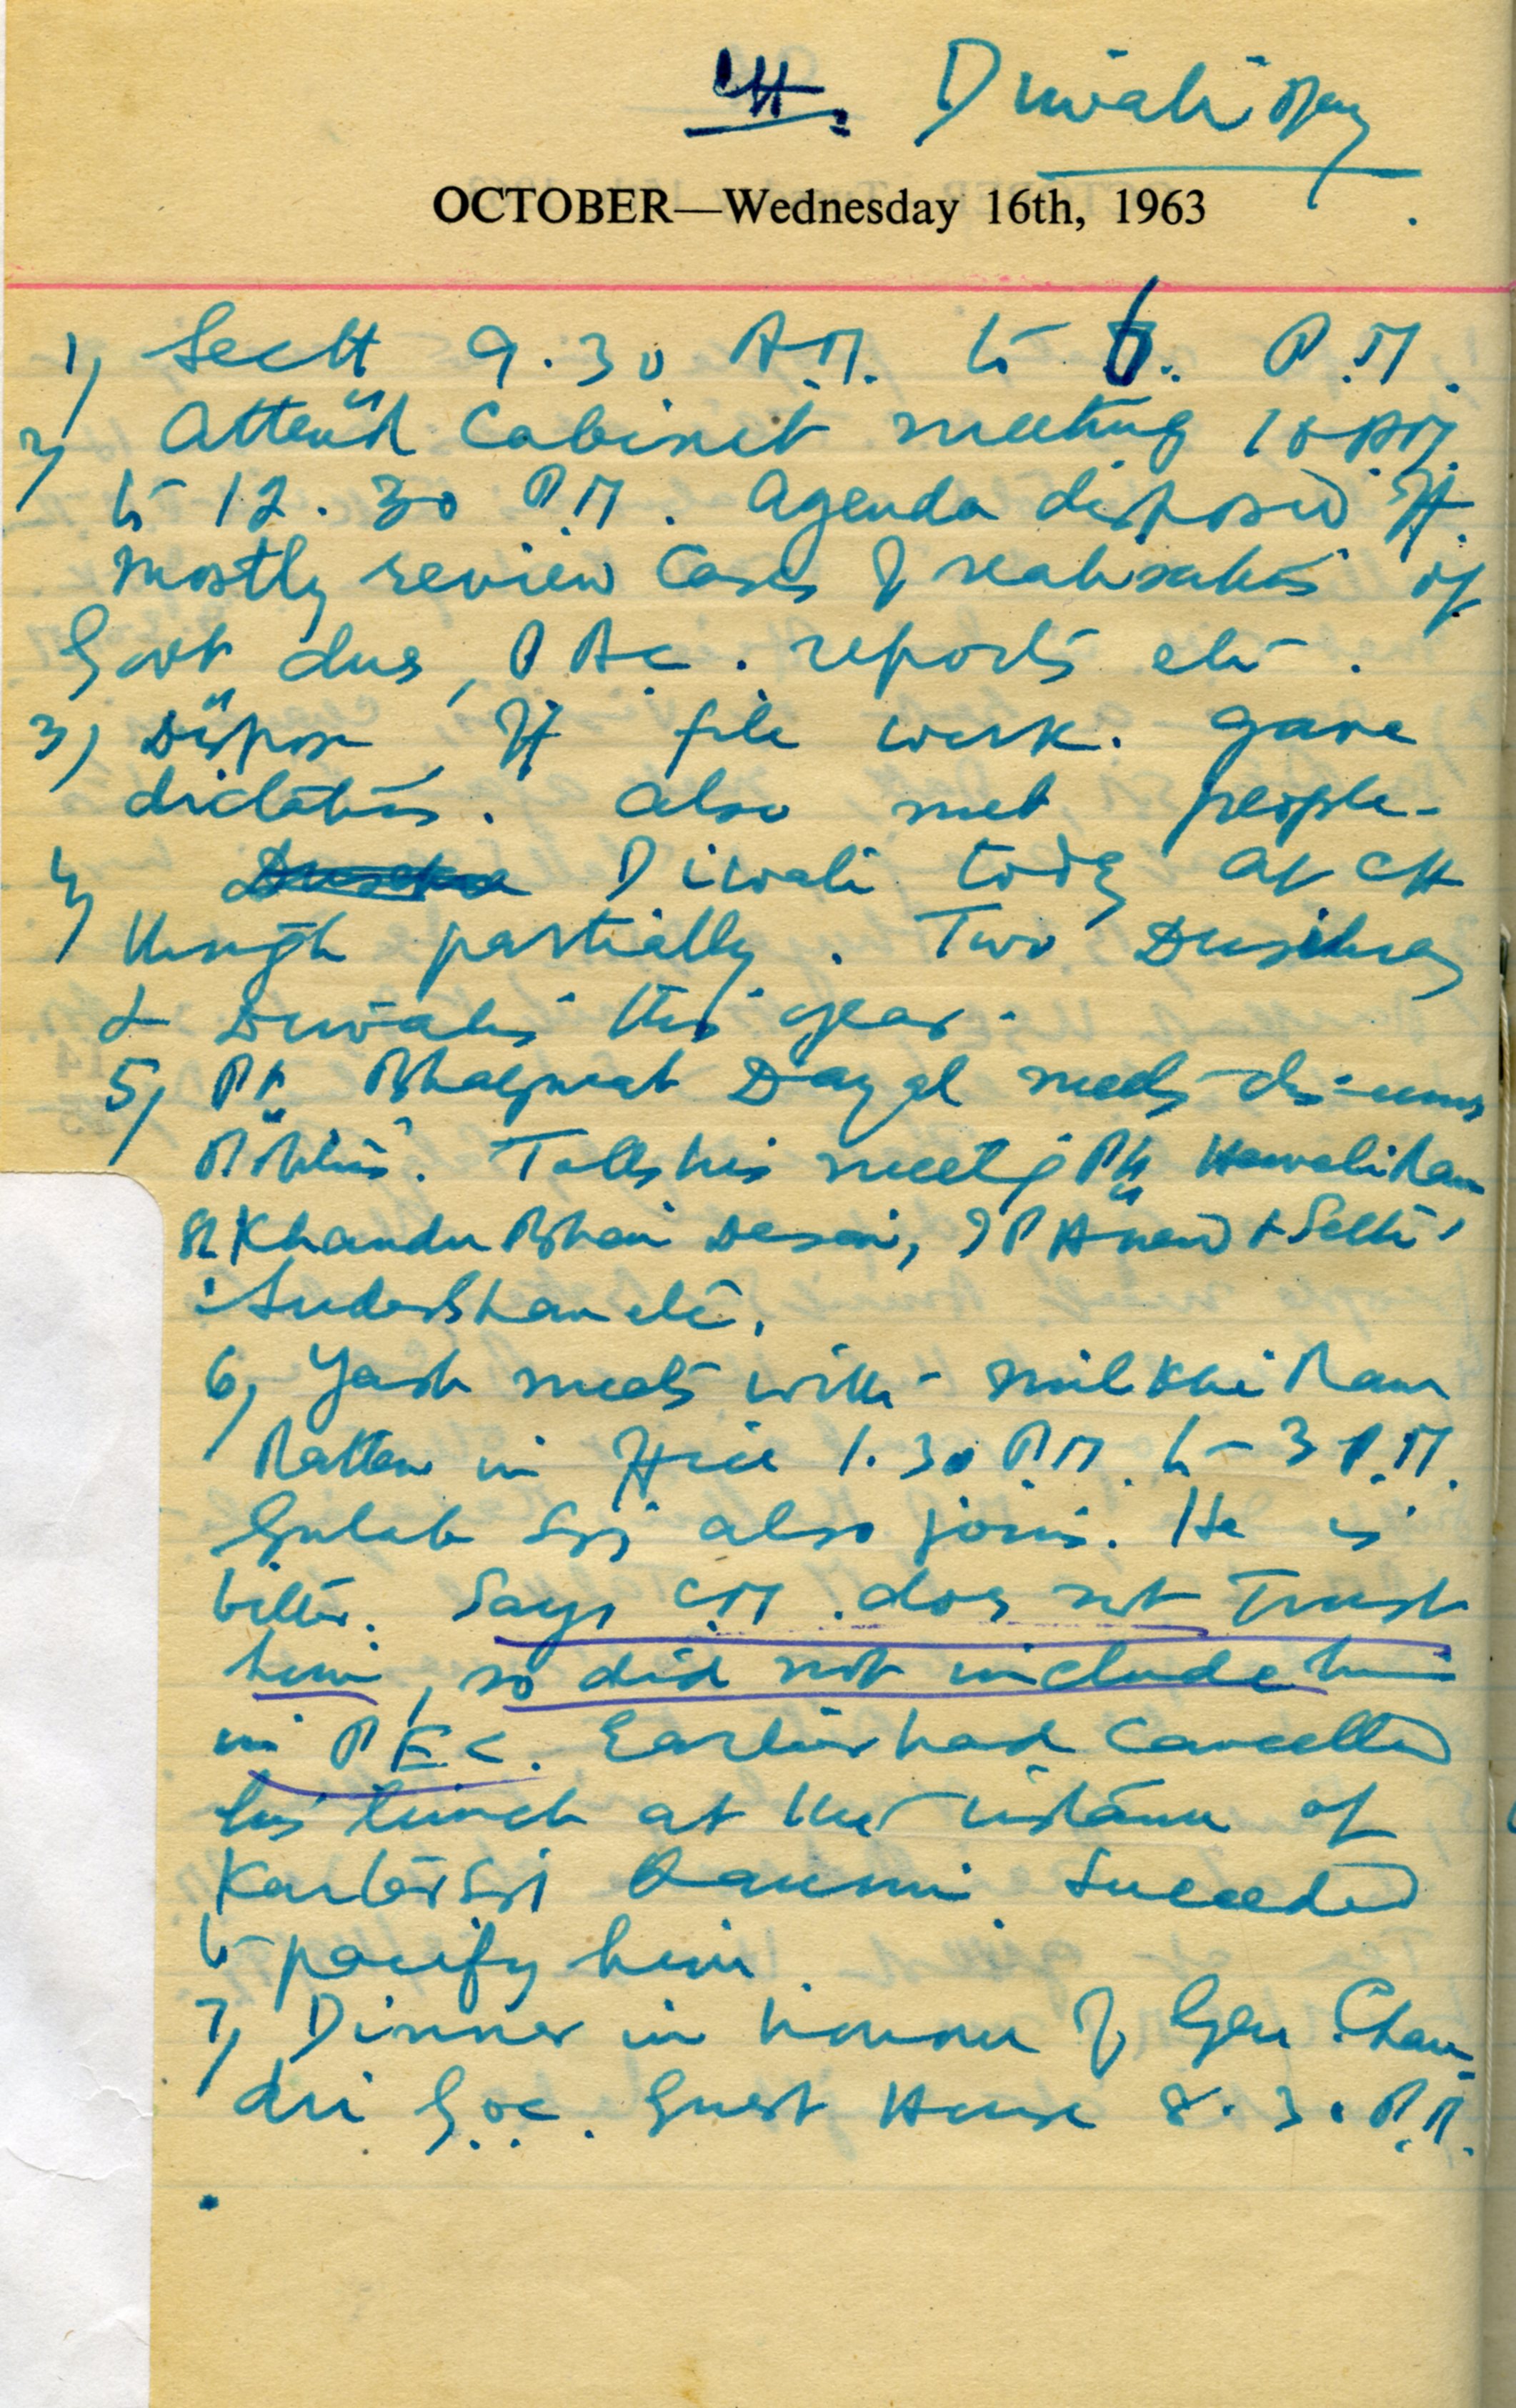 CH. Diwali Day
OCTOBER—Wednesday 16th, 1963
1) Sectt 9.30 A.M. to 6. P.M.
2) Attend Cabinet meeting 10 AM
to 12.30 P.M. Agenda disposed off.
Mostly review Cases of realisation of
Govt dues, P.A.C. reports etc.
3) Dispose off file work. Gave
dictation. Also met people.
4) Diwali today at CH
though partially. Two Dusehras
& Diwalis this year.
5) Pt. Bhagwat Dayal meets
Politics. Tells his meeting Pt
Sh Khandu Bhai Desai, I P Anand & Sethi,
Sudershan etc.
6) Yash meets with Milkhi Ram
Rattan in office 1.30 P.M. to 3 P.M.
Gulab Sgj also joins. He is
bitter. Says C.M. does not Trust
him, so did not include him
in P.E.C. Earlier had Cancelled
his lunch at the instance of
Kartar Sgj Succeeded
to pacify him.
7) Dinner in honour of Gen Chau-
dri G.O.C. Guest House 8.30 P.M.